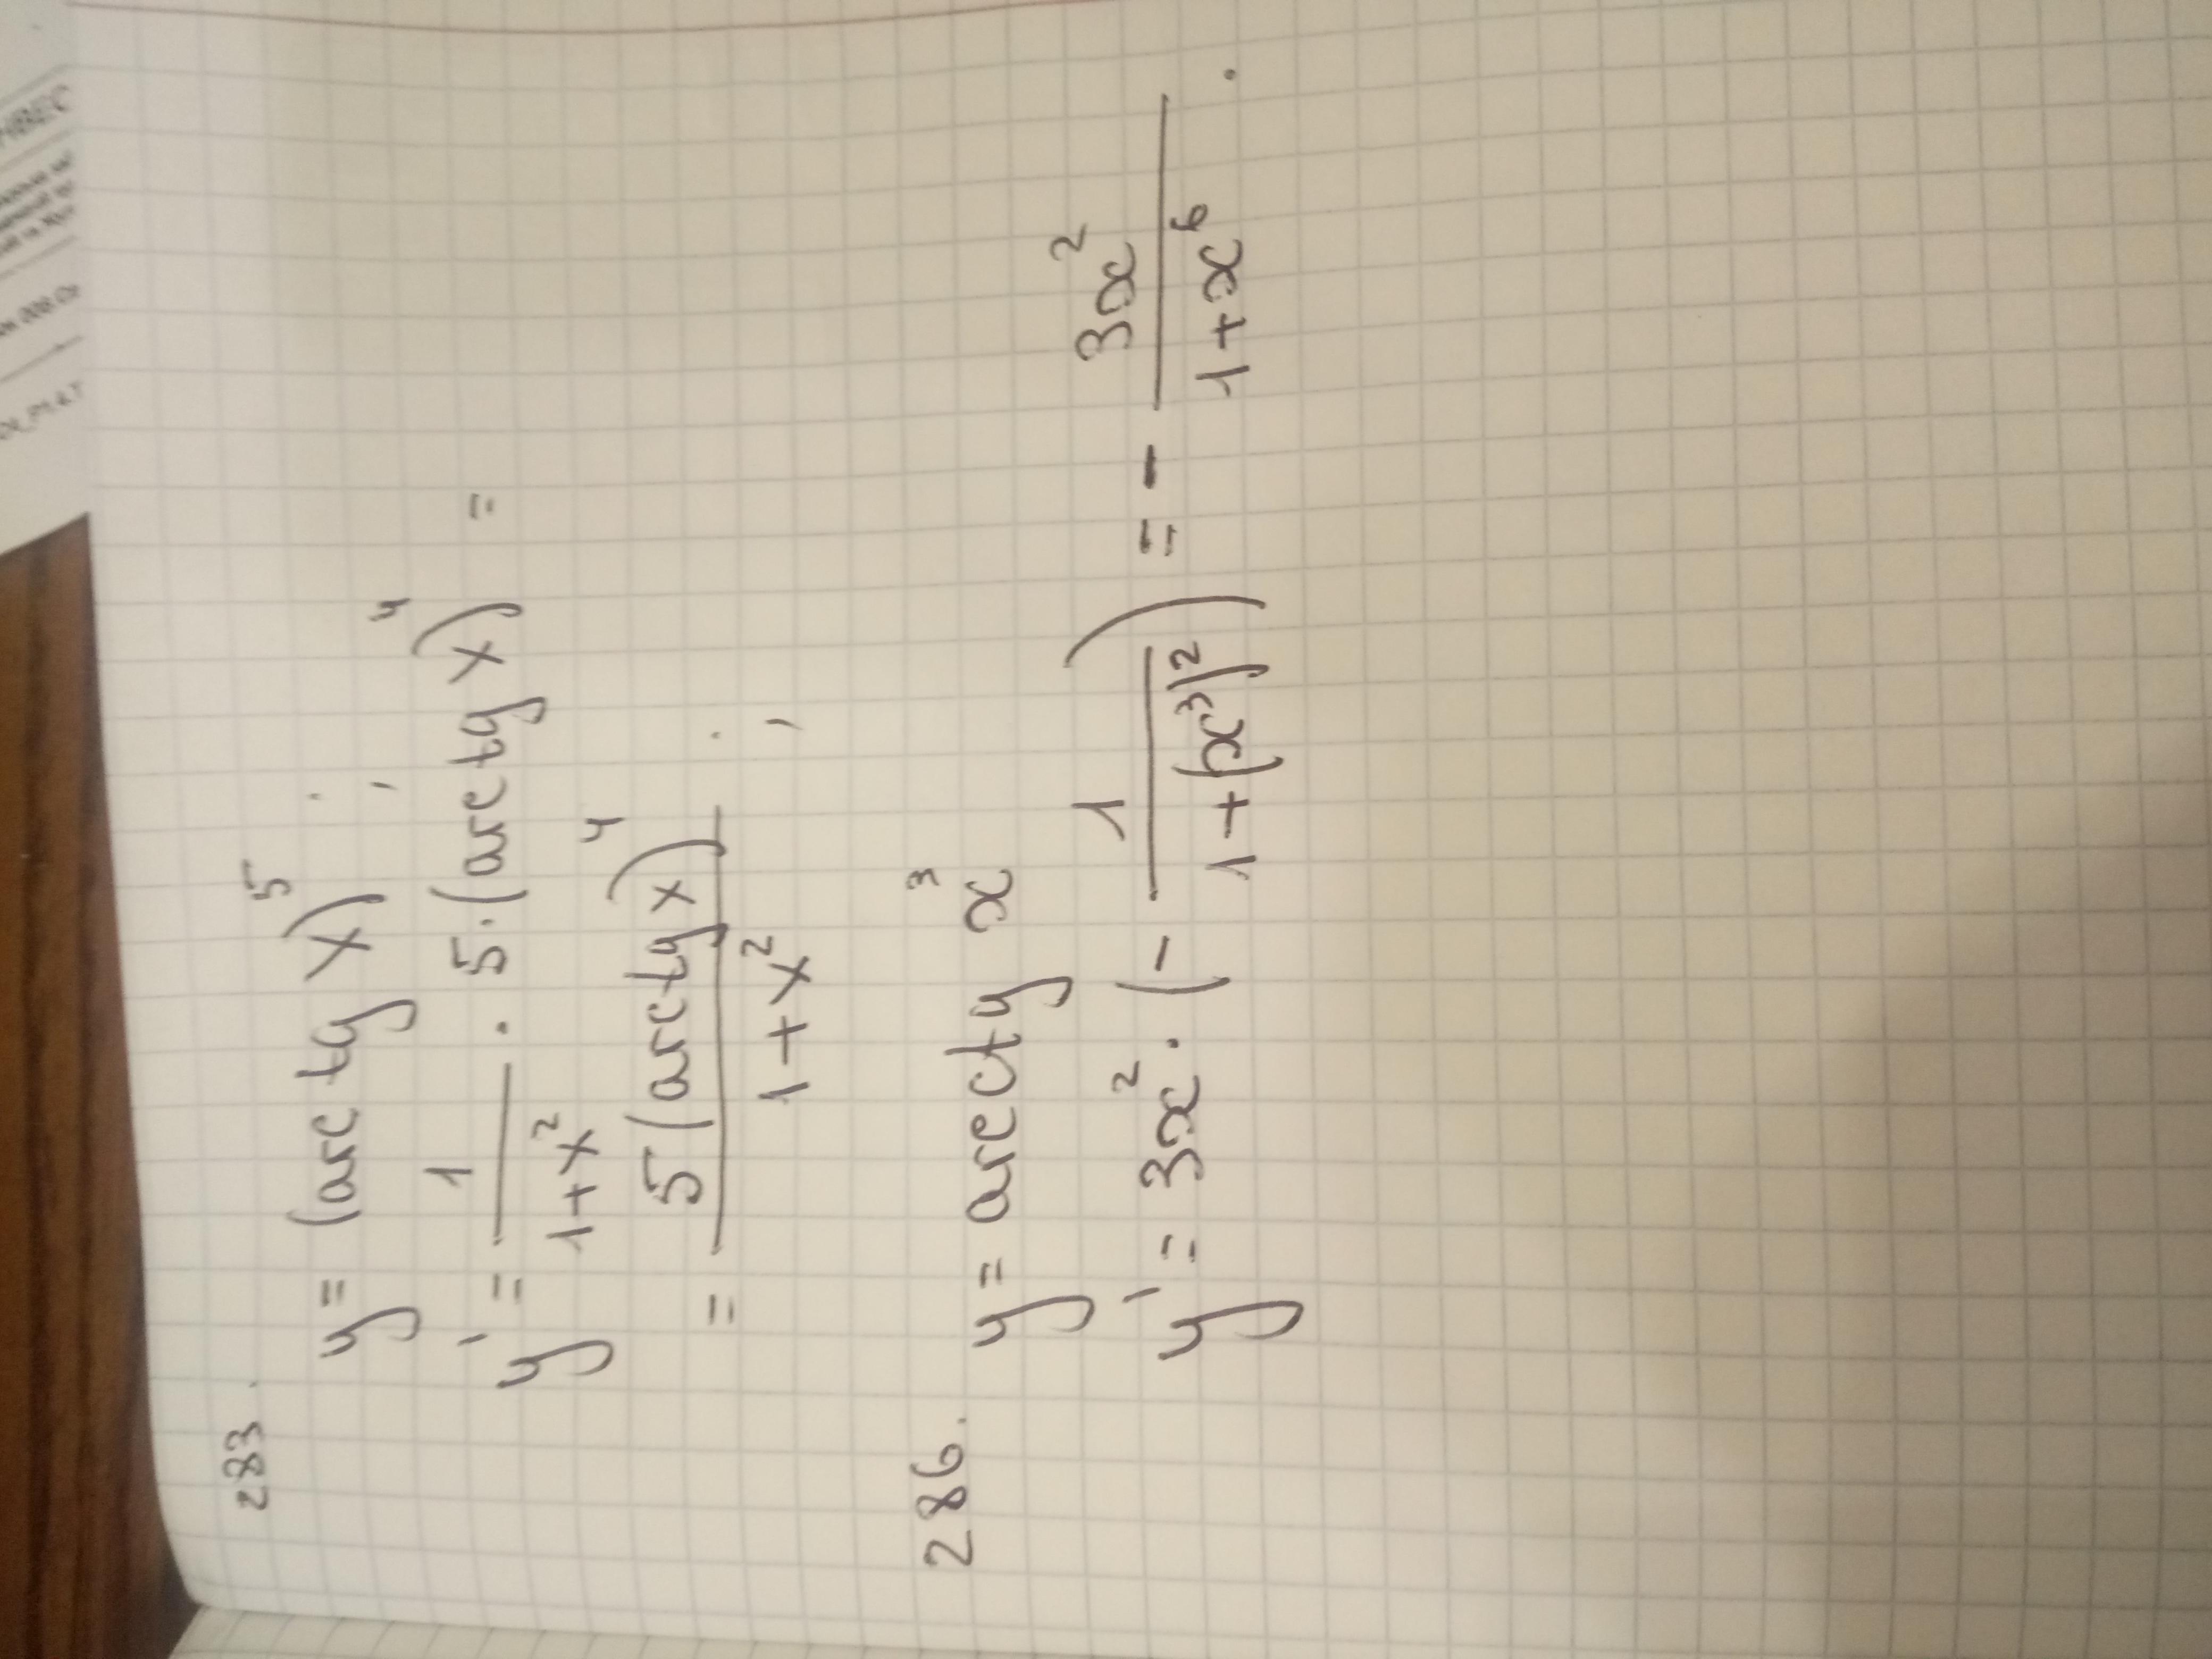 283.
y = (arctg x)⁵ ;
y' = 1/(1+x²) · 5·(arctg x)⁴ =
= 5(arctg x)⁴/(1+x²) ;
286. y = arcctg x³
y' = 3x² · (- 1/(1+(x³)²)) = - 3x²/(1+x⁶) .